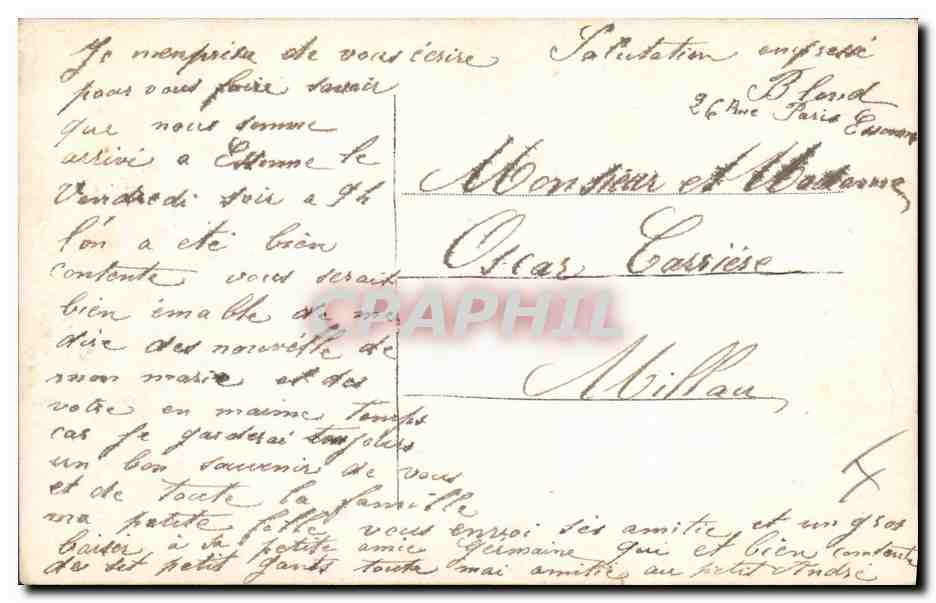 Je m'enprise de vous écrire
pour vous faire savoir
que nous somme
arrivé a Essonne le
Vendredi soir a 9h
l'on a été bien
contente vous serait
bien émable de me
dire des nouvélle de
mon marie et des
votre en maime temps
car je garderai toujours
un bon souvenir de vous
et de toute la famille
ma petite fille vous envoi ses amitié et un gros
baiser à sa petite amie Germaine qui et bien contente
de set petit gants toute mai amitié au petit André
Salutation empressé
Blond
26 Rue Paris Essonne
Monsieur et Madame
Oscar Carrière
Millau
CPAPHIL